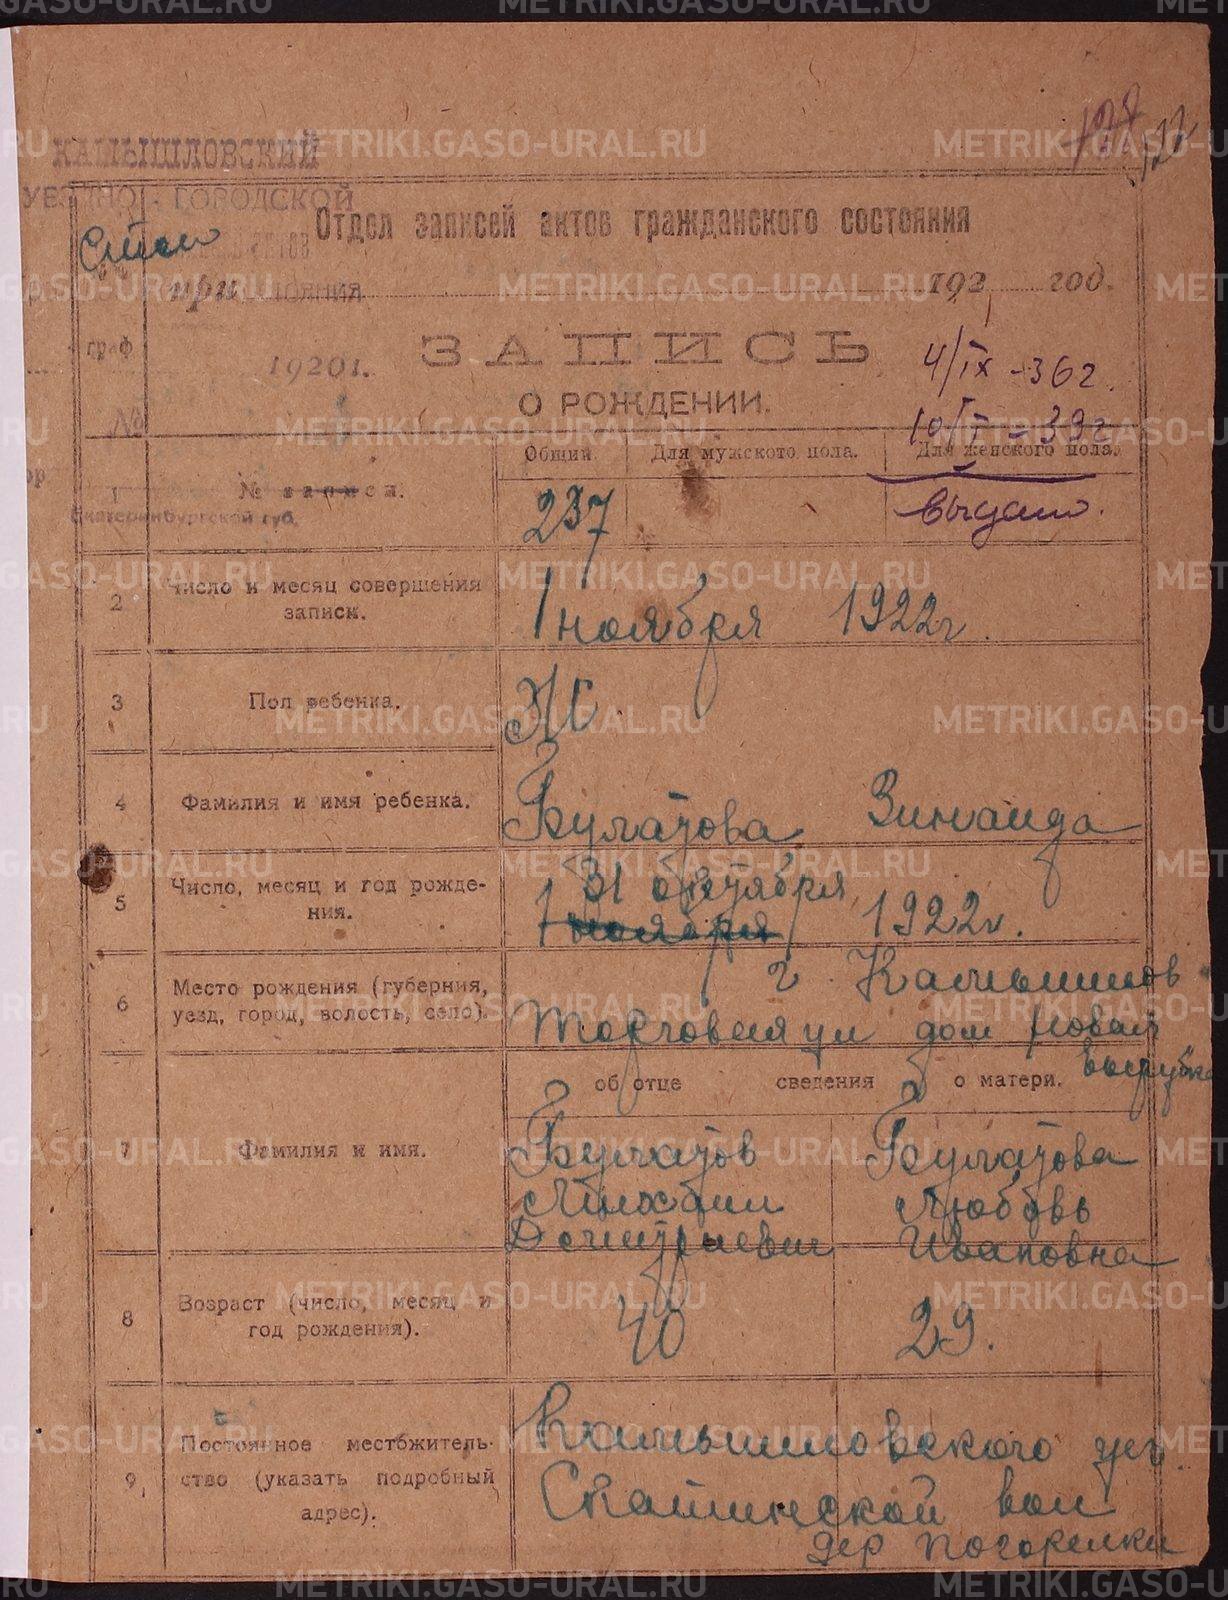 КАМЫШЛОВСКИЙ
ГОРОДСКОЙ
Отдел записей актов гражданского состояния
Стол
при 192 год.
граф
1920 г.
ЗАПИСЬ
4/IX - 36 г.
О РОЖДЕНИИ.
10/I - 39 г.
№
Общий Для мужского пола. Для женского пола.
1 № записи.
237
выдано.
Екатеринбургской губ.
2 Число и месяц совершения
записи.
1 ноября 1922 г.
3 Пол ребенка.
Ж.
4 Фамилия и имя ребенка.
Булатова Зинаида
5 Число, месяц и год рожде-
ния.
31 октября
1 ноября 1922 г.
6 Место рождения (губерния,
уезд, город, волость, село).
г. Камышлов
Торговая ул дом
об отце сведения о матери.
7 Фамилия и имя.
Булатов Булатова
Михаил Любовь
Дмитриевич Ивановна
8 Возраст (число, месяц и
год рождения).
40 29.
9 Постоянное местожитель-
ство (указать подробный
адрес).
Камышловского уез.
Скатинской вол
дер Погорелки
METRIKI.GASO-URAL.RU